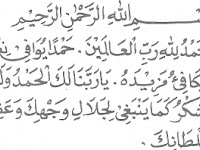 ـسْمِ اللهِ الرَّحْمٰنِ الرَّحِيْمِ
ـمْدُ لِلّٰهِ رَبِّ الْعَالَمِيْنَ. حَمْدًا يُوَافِيْ
ـكَافِئُ مَزِيْدَهُ. يَارَبَّنَا لَكَ الْحَمْدُ وَلَـ
شُكْرُ كَمَا يَنْبَغِيْ لِجَلَالِ وَجْهِكَ وَعَظِـ
ـلْطَانِكَ.